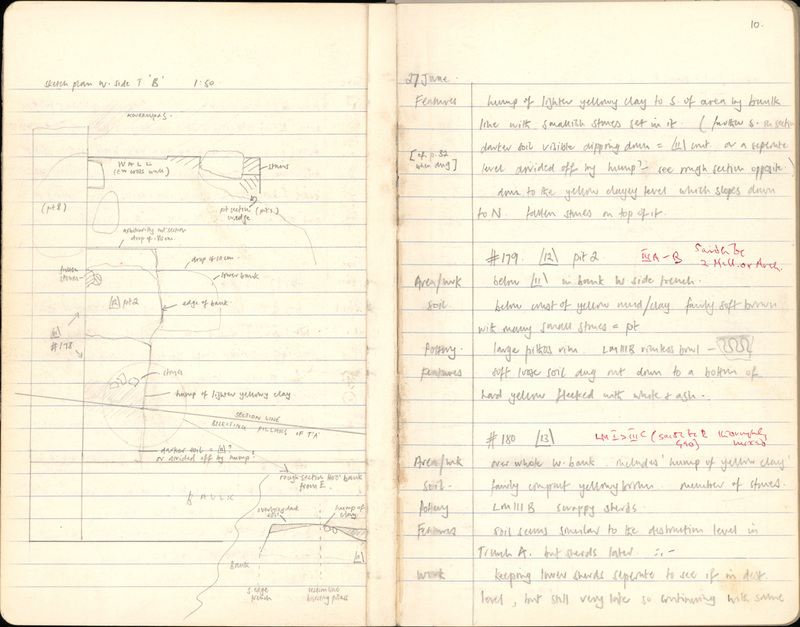 sketch plan w. side T 'B' 1:50
WALL
(E-W cross wall)
stones
(pt 8)
pt section (pt 2)
wedge
drop of 10 cm
lower bank
fallen
stones
[12] pit 2
edge of bank
#178
stones
hump of lighter yellowy clay
SECTION LINE
BISECTING PILLARS OF T'A'
darker soil = [11]?
or divided off by hump
rough section thro' bank
from E.
BAULK
hump of
clay
Baulk
S. edge
trench
section line
bisecting pillars
10.
27 June.
Features hump of lighter yellowy clay to S of area by baulk
line with smallish stones set in it. (further S. in section
darker soil visible dipping down = [11] cont or a seperate
[cf. p. 32
when dug]
level divided off by hump? - see rough section opposite)
down to the yellow clayey level which slopes down
to N. fallen stones on top of it.
#179 [12] pit 2 III A - B
Area/wrk below [11] in bank W side trench.
Soil below crust of yellow mud/clay fairly soft brown
with many small stones = pt
Pottery large pithos rim. LM III B rimless bowl -
Features soft loose soil dug out down to a bottom of
hard yellow flecked with white & ash.
#180 [13] LM I > III C thoroughly
mixed
Area/wrk over whole w. bank. includes 'hump of yellow clay'
Soil fairly compact yellowy brown. number of stones.
Pottery LM III B scrappy sherds.
Features soil seems similar to the destruction level in
Trench A. but sherds later. ∴ -
Work keeping lower sherds seperate to see if in dest
level, but still very late so continuing with same